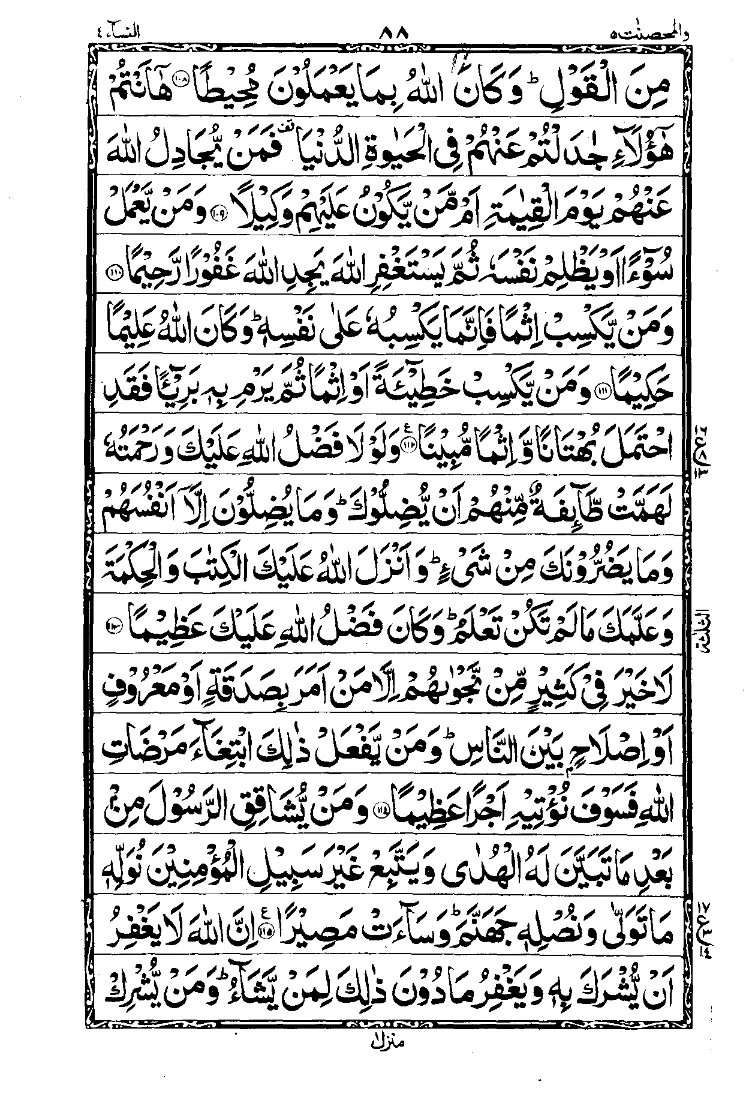 والمحصنٰت ٥
٨٨
النسآء ٤
مِنَ الْقَوْلِ ؕ وَكَانَ اللّٰهُ بِمَا يَعْمَلُوْنَ مُحِيْطًا ﴿١٠٨﴾ هٰۤاَنْتُمْ
هٰۤؤُلَآءِ جٰدَلْتُمْ عَنْهُمْ فِى الْحَيٰوةِ الدُّنْيَا ࣞ فَمَنْ يُّجَادِلُ اللّٰهَ
عَنْهُمْ يَوْمَ الْقِيٰمَةِ اَمْ مَّنْ يَّكُوْنُ عَلَيْهِمْ وَكِيْلًا ﴿١٠٩﴾ وَمَنْ يَّعْمَلْ
سُوْٓءًا اَوْ يَظْلِمْ نَفْسَهٗ ثُمَّ يَسْتَغْفِرِ اللّٰهَ يَجِدِ اللّٰهَ غَفُوْرًا رَّحِيْمًا ﴿١١٠﴾
وَمَنْ يَّكْسِبْ اِثْمًا فَاِنَّمَا يَكْسِبُهٗ عَلٰى نَفْسِهٖ ؕ وَكَانَ اللّٰهُ عَلِيْمًا
حَكِيْمًا ﴿١١١﴾ وَمَنْ يَّكْسِبْ خَطِيْٓئَةً اَوْ اِثْمًا ثُمَّ يَرْمِ بِهٖ بَرِيْٓئًا فَقَدِ
احْتَمَلَ بُهْتَانًا وَّاِثْمًا مُّبِيْنًا ﴿١١٢﴾ ع وَلَوْلَا فَضْلُ اللّٰهِ عَلَيْكَ وَرَحْمَتُهٗ
لَهَمَّتْ طَّآئِفَةٌ مِّنْهُمْ اَنْ يُّضِلُّوْكَ ؕ وَمَا يُضِلُّوْنَ اِلَّاۤ اَنْفُسَهُمْ
وَمَا يَضُرُّوْنَكَ مِنْ شَىْءٍ ؕ وَاَنْزَلَ اللّٰهُ عَلَيْكَ الْكِتٰبَ وَالْحِكْمَةَ
وَعَلَّمَكَ مَا لَمْ تَكُنْ تَعْلَمُ ؕ وَكَانَ فَضْلُ اللّٰهِ عَلَيْكَ عَظِيْمًا ﴿١١٣﴾
الثلٰثة
لَا خَيْرَ فِىْ كَثِيْرٍ مِّنْ نَّجْوٰىهُمْ اِلَّا مَنْ اَمَرَ بِصَدَقَةٍ اَوْ مَعْرُوْفٍ
اَوْ اِصْلَاحٍ ۭ بَيْنَ النَّاسِ ؕ وَمَنْ يَّفْعَلْ ذٰلِكَ ابْتِغَآءَ مَرْضَاتِ
اللّٰهِ فَسَوْفَ نُؤْتِيْهِ اَجْرًا عَظِيْمًا ﴿١١٤﴾ وَمَنْ يُّشَاقِقِ الرَّسُوْلَ مِنْۢ
بَعْدِ مَا تَبَيَّنَ لَهُ الْهُدٰى وَيَتَّبِعْ غَيْرَ سَبِيْلِ الْمُؤْمِنِيْنَ نُوَلِّهٖ
مَا تَوَلّٰى وَنُصْلِهٖ جَهَنَّمَ ؕ وَسَآءَتْ مَصِيْرًا ﴿١١٥﴾ ع اِنَّ اللّٰهَ لَا يَغْفِرُ
اَنْ يُّشْرَكَ بِهٖ وَيَغْفِرُ مَا دُوْنَ ذٰلِكَ لِمَنْ يَّشَآءُ ؕ وَمَنْ يُّشْرِكْ
منزل ١